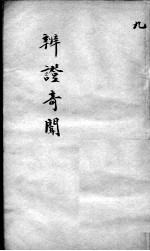 九
辨證奇聞